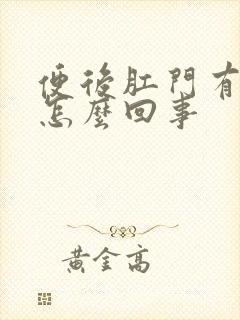 便後肛門有
怎麼回事
黃金高